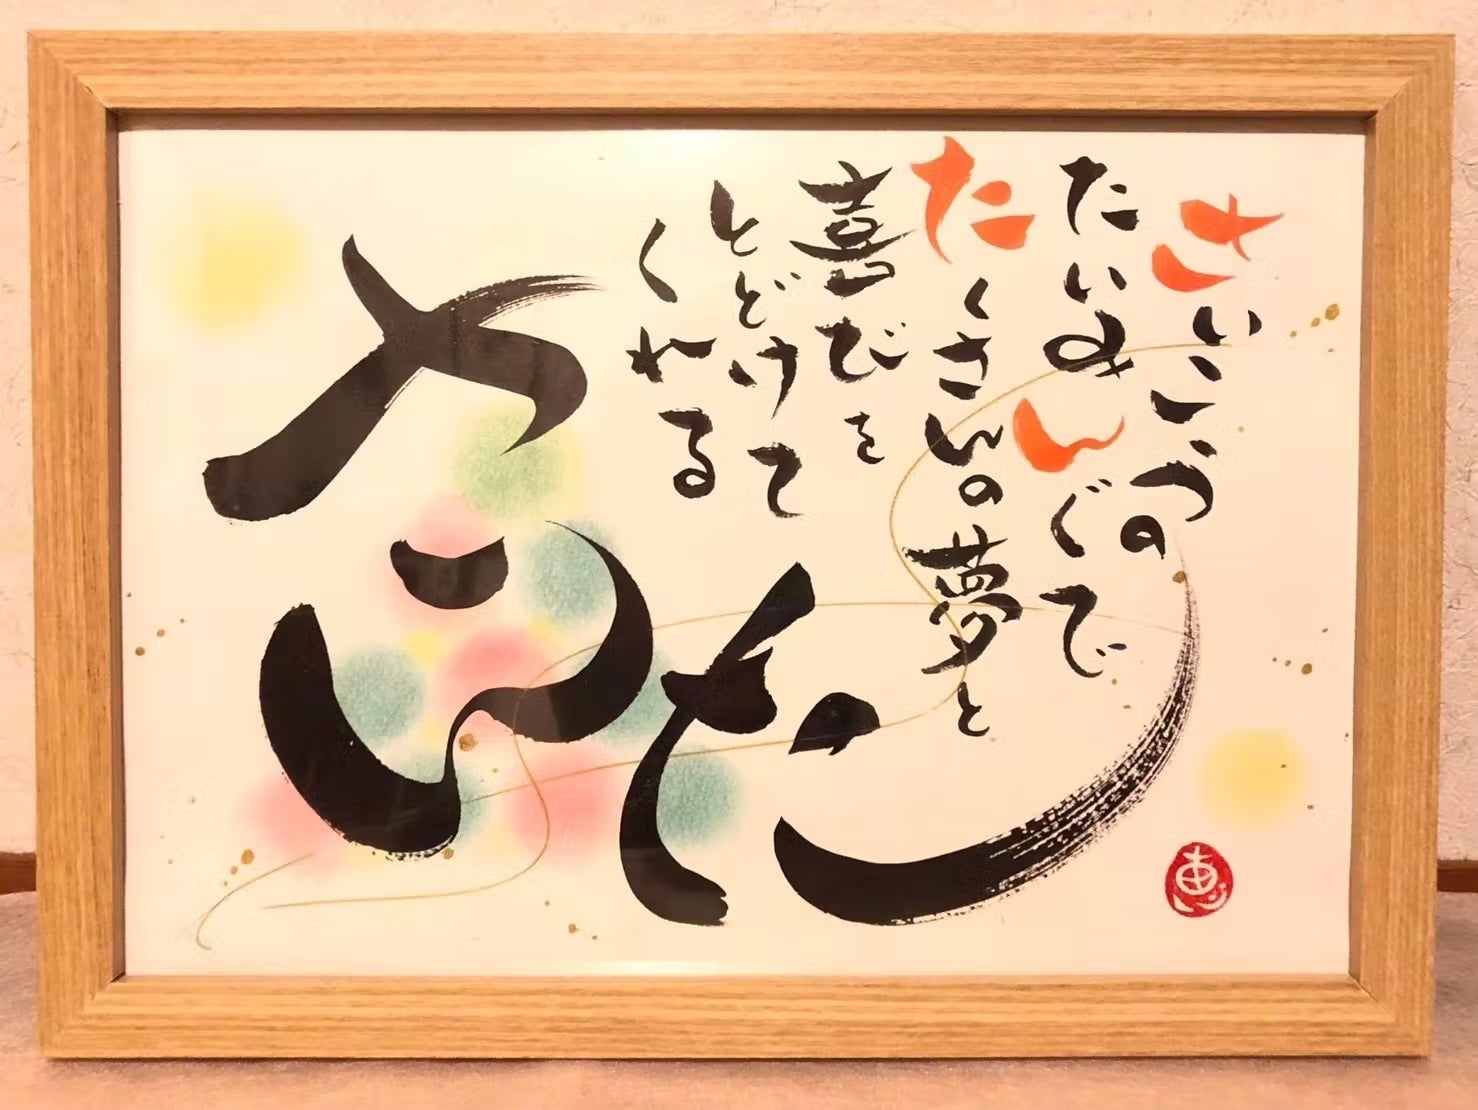 さいこうの
たいみんぐで
たくさんの夢と
喜びを
とどけて
くれる
さんた
恵